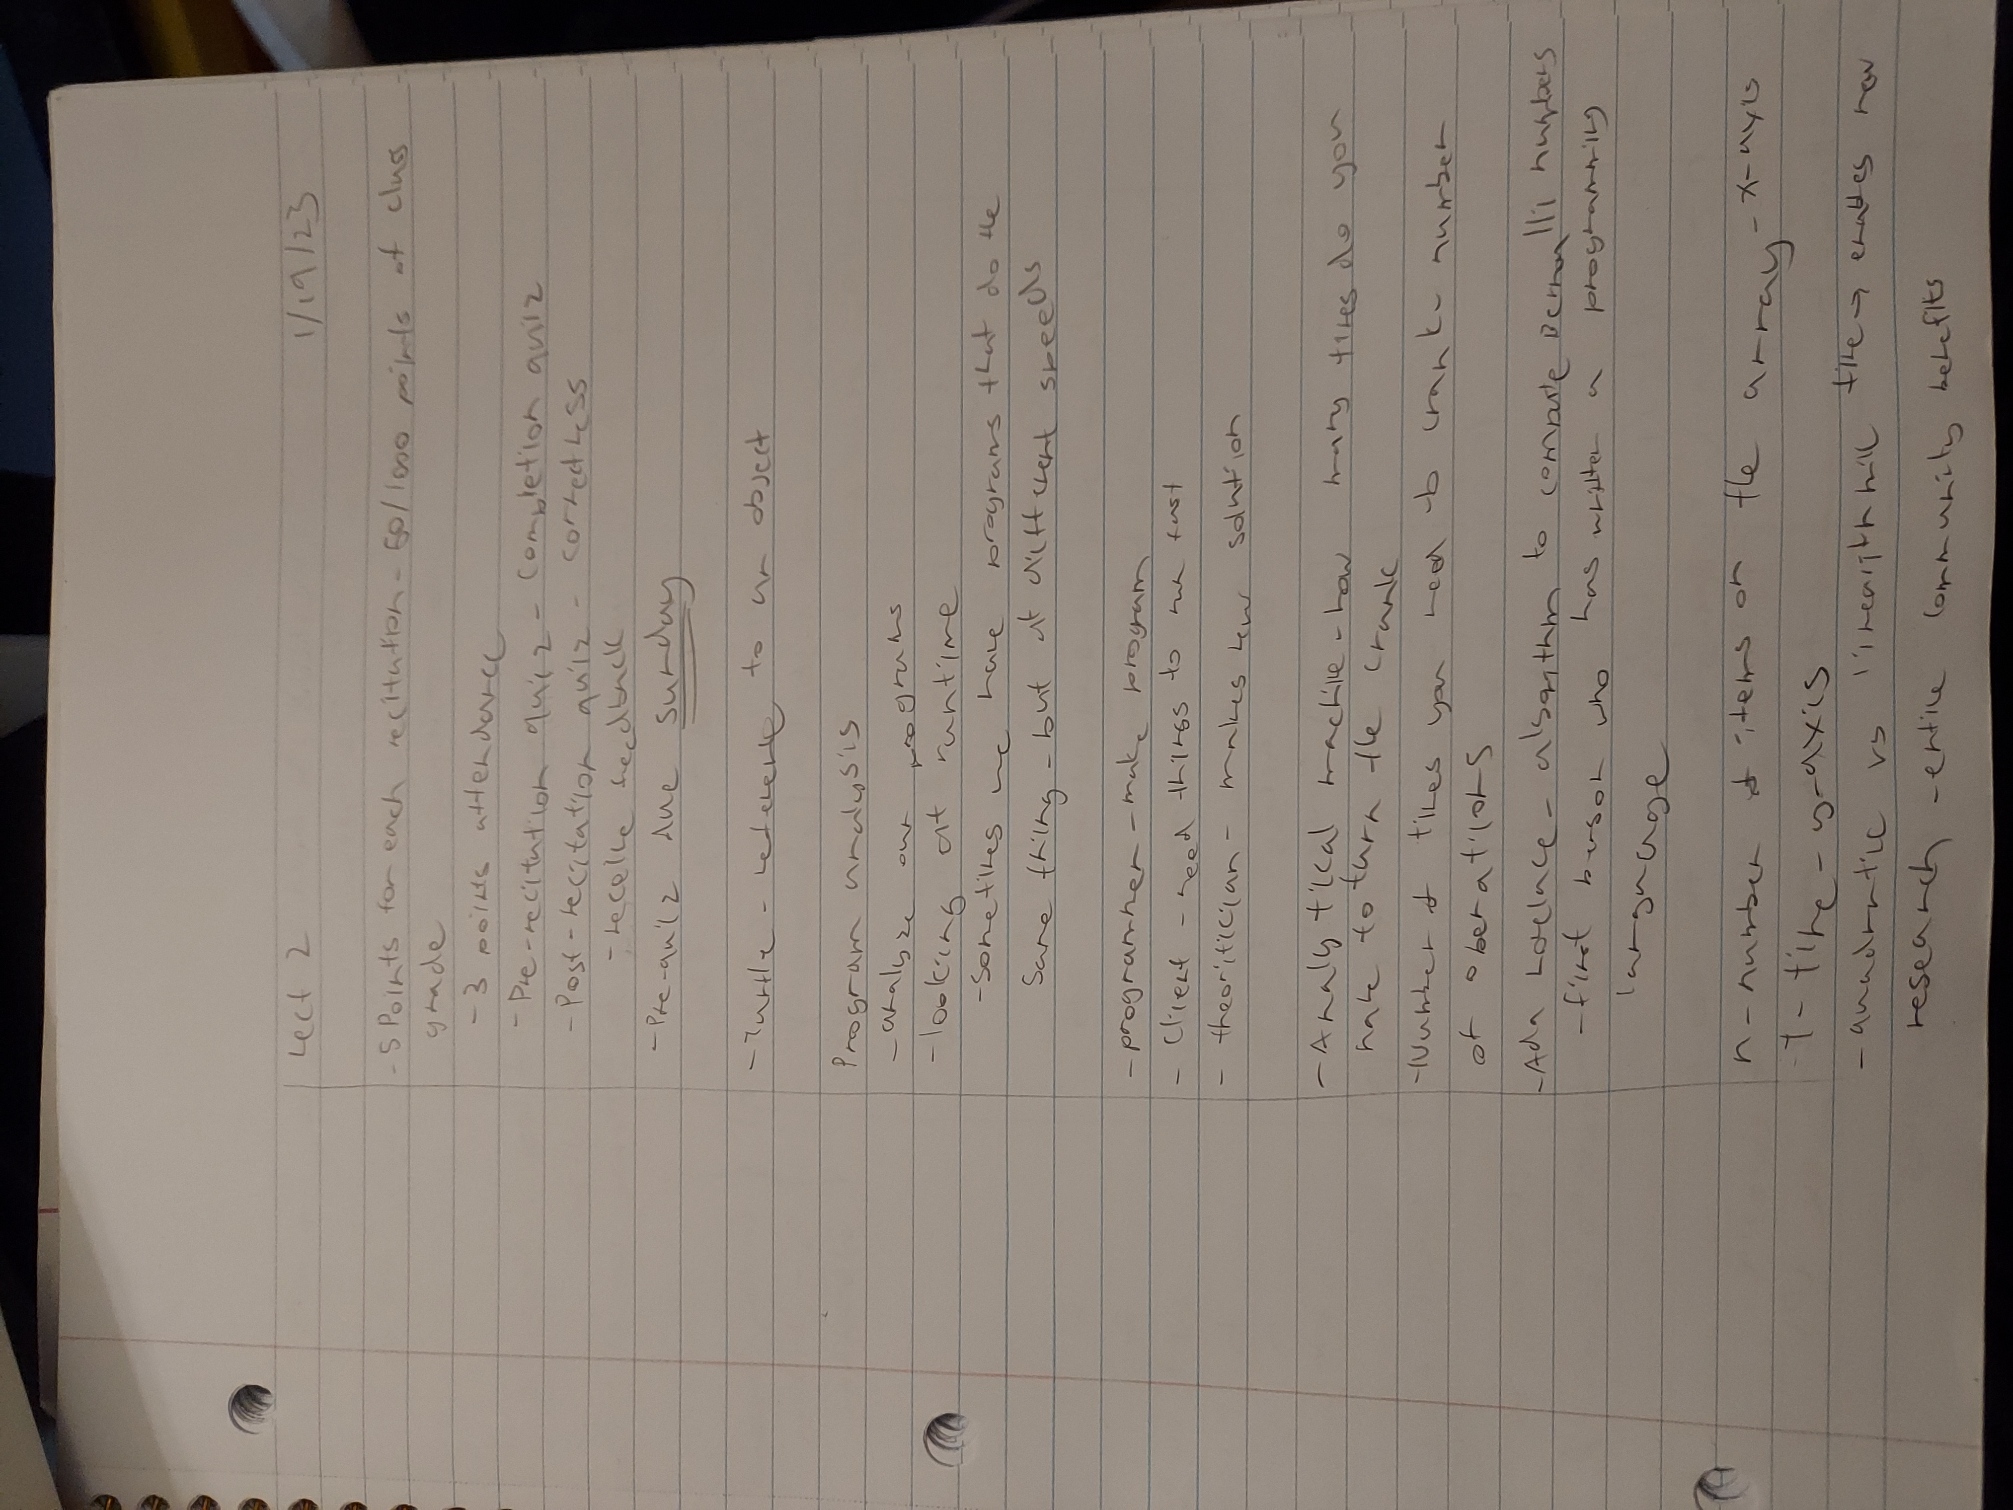 Lect 2 1/19/23
- 5 Points for each recitation - 60/1000 points of class
grade
- 3 points attendance
- Pre-recitation quiz - completion quiz
- Post-recitation quiz - correctness
- receive feedback
- Pre-quiz due Sunday
- Turtle - reference to an object
Program analysis
- analyze our programs
- looking at runtime
- Sometimes we have programs that do the
same thing - but at different speeds
- programmer - make program
- Client - need things to run fast
- theoritician - makes new solution
- Analytical machine - how many times do you
have to turn the crank
- Number of times you need to crank - number
of operations
- Ada Lovelace - algorythm to compute Bernoulli numbers
- first person who has written a programming
language
n - number of items on the array - x-axis
T - time - y-axis
- quadratic vs linearithmic time → enables new
research - entire community benefits